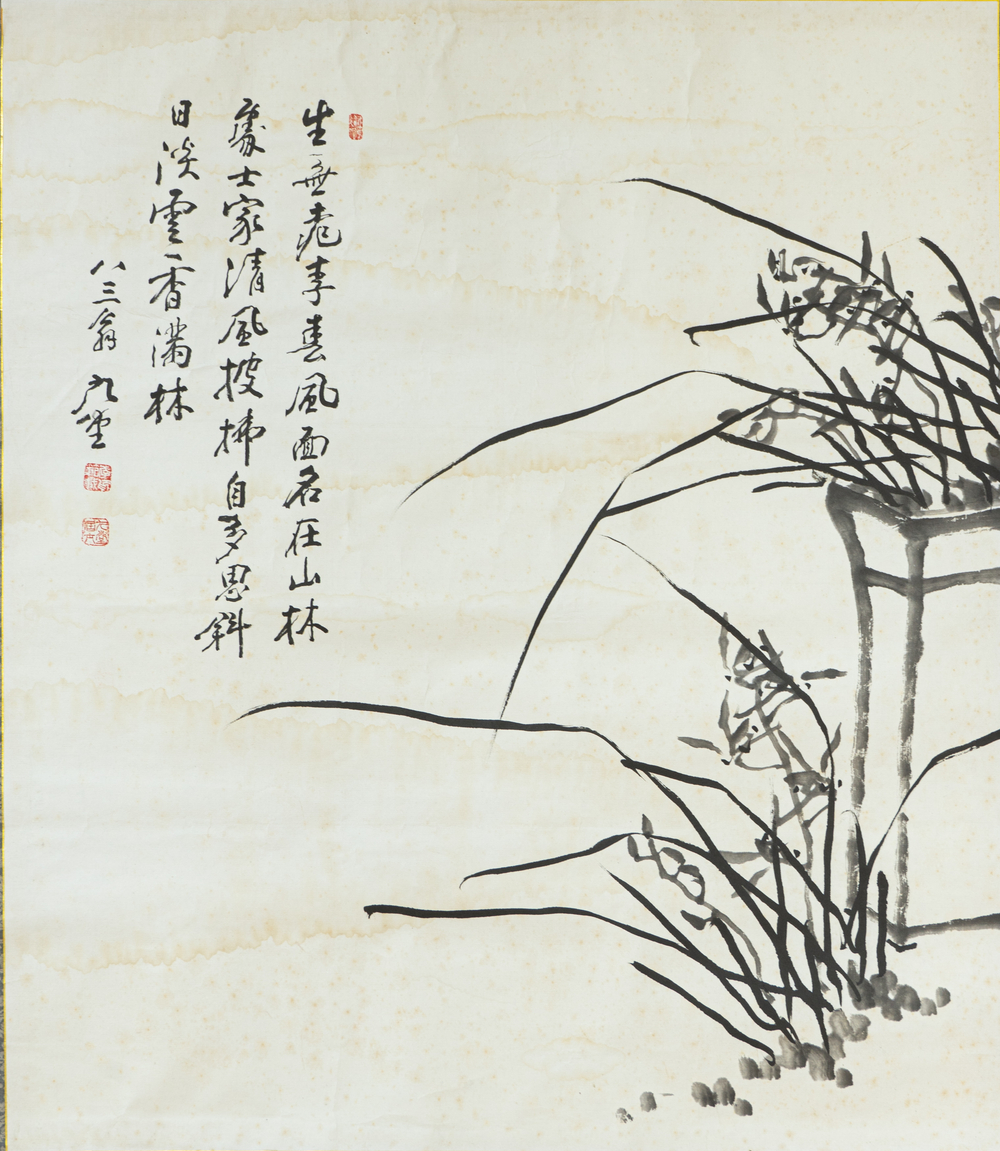 生無桃李春風面名在山林
處士家清風披拂自多思斜
日淡雲香滿林
八三翁 九堂